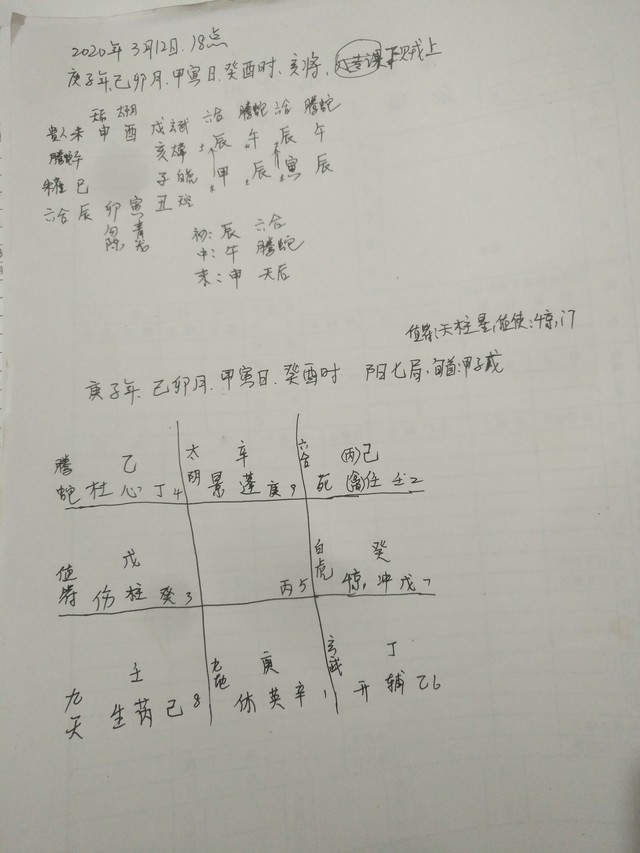 2020年3月12日.18点
庚子年、己卯月、甲寅日、癸酉时、亥将、
天后 太阴
贵人 未 申 酉 戌 玄武 六合 腾蛇 六合 腾蛇
腾蛇 午 亥 辰 午 辰 午
朱雀 巳 子 甲 辰 寅 辰
六合 辰 卯 寅 丑
勾陈 青龙
初: 辰 六合
中: 午 腾蛇
末: 申 天后
值符:天柱星,值使:惊门
庚子年、己卯月、甲寅日、癸酉时 阳七局、旬首:甲子戊
腾蛇 乙 太阴 辛 六合 (丙)己
杜 心 丁4 景 蓬 庚9 死 (禽)任 壬2
值符 戊 白虎 癸
伤 柱 癸3 丙5 惊 冲 戊7
九天 壬 九地 庚 玄武 丁
生 芮 己8 休 英 辛1 开 辅 乙6